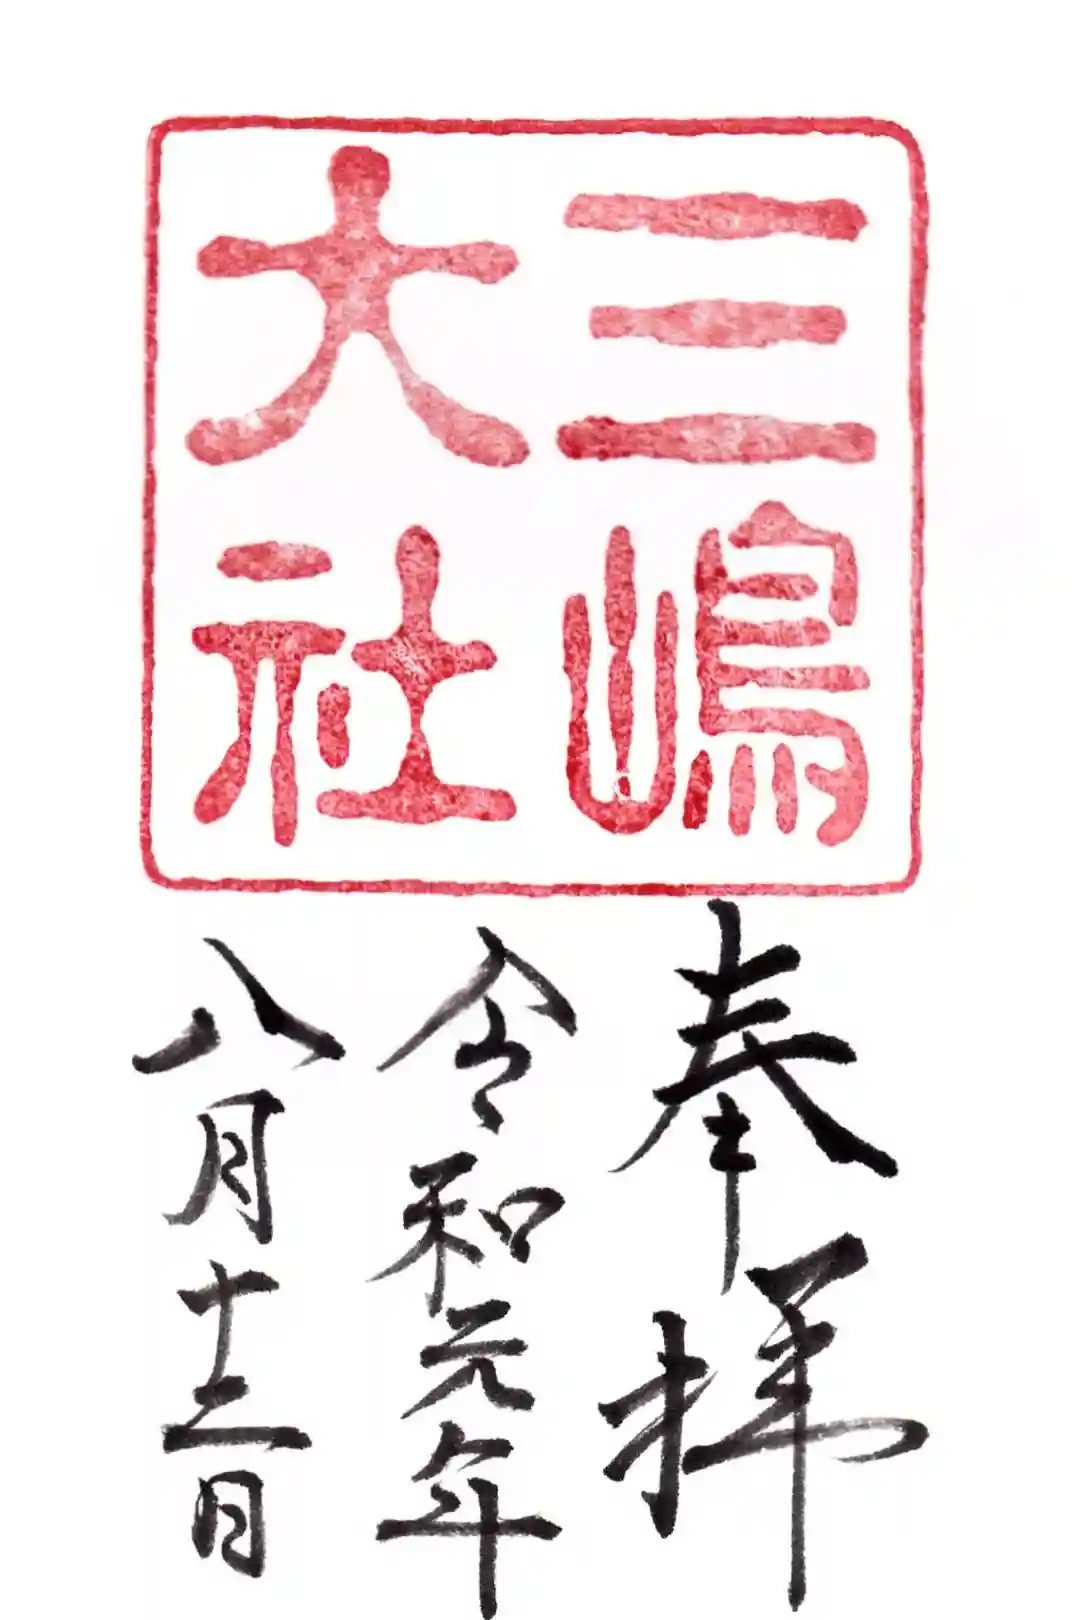 三嶋
大社
奉拝
令和元年
八月十二日